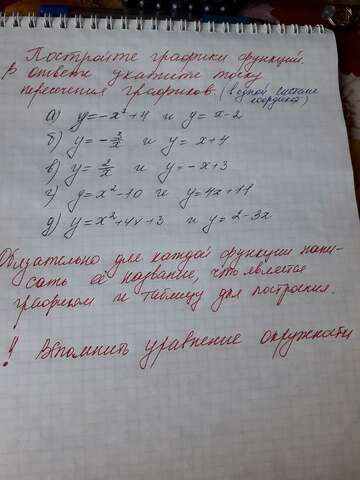 Постройте графики функций.
В ответе укажите точку
пересечения графиков. (в одной системе
координат)
а) y=-x²+4 и y=x-2
б) y=-3/x и y=x+4
в) y=2/x и y=-x+3
г) y=x²-10 и y=4x+11
д) y=x²+4x+3 и y=2-3x
Обязательно для каждой функции напи-
сать её название, что является
графиком и таблицу для построения.
!! Вспомнить уравнение окружности